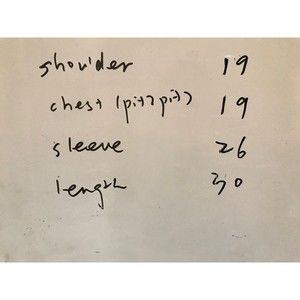 shoulder 19
chest (pit2pit) 19
sleeve 26
length 30